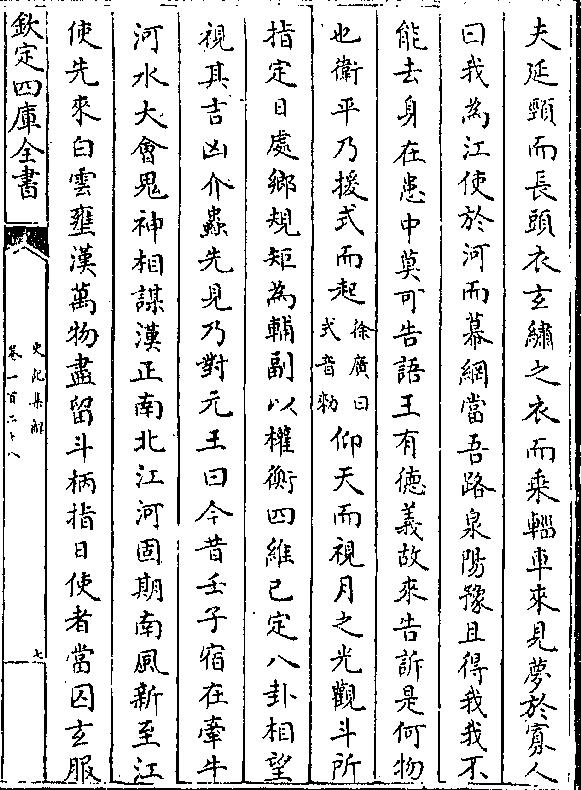 夫延頸而長頭衣玄繡之衣而乘輜車來見夢於寡人
曰我為江使於河而幕網當吾路泉陽豫且得我我不
能去身在患中莫可告語王有德義故來告訴是何物
也衛平乃援式而起徐廣曰式音勑仰天而視月之光觀斗所
指定日處鄉規矩為輔副以權衡四維已定八卦相望
視其吉凶介蟲先見乃對元王曰今昔壬子宿在牽牛
河水大會鬼神相謀漢正南北江河固期南風新至江
使先來白雲壅漢萬物盡留斗柄指日使者當囚玄服
欽定四庫全書
史記集解
卷一百二十八
七